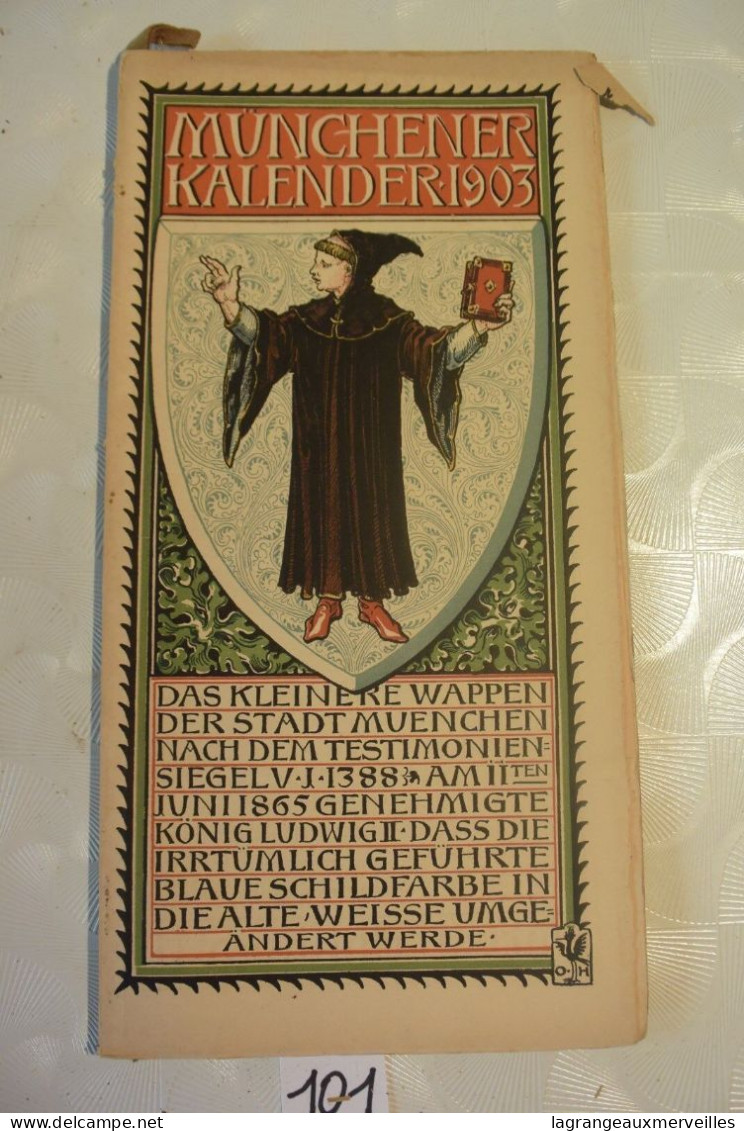 MÜNCHENER
KALENDER·1903
DAS KLEINERE WAPPEN
DER STADT MUENCHEN
NACH DEM TESTIMONIEN=
SIEGEL V·J·1388 AM 11TEN
JUNI 1865 GENEHMIGTE
KÖNIG LUDWIG II·DASS DIE
IRRTÜMLICH GEFÜHRTE
BLAUE SCHILDFARBE IN
DIE ALTE, WEISSE UMGE=
ÄNDERT WERDE·
O·H
101
delcampe.net
lagrangeauxmerveilles